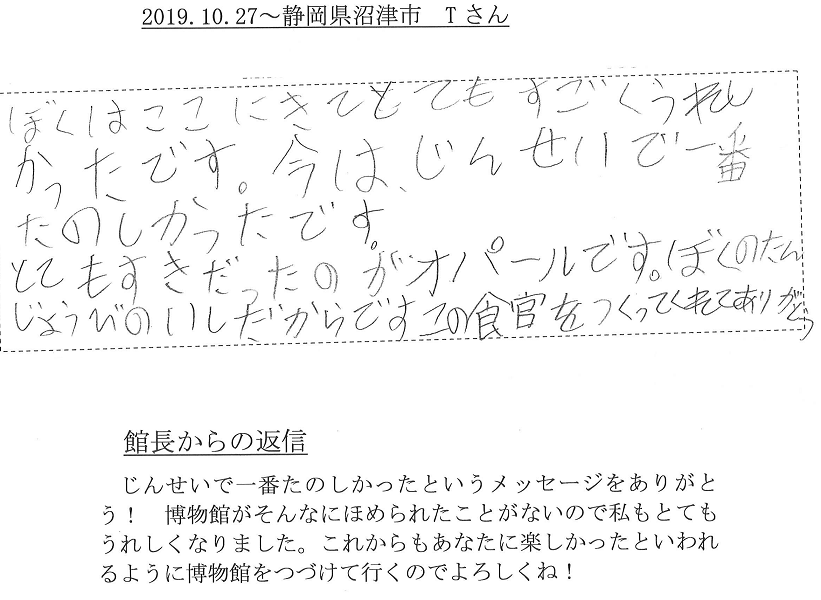 2019.10.27～静岡県沼津市　Tさん
ぼくはここにきてとてもすごくうれし
かったです。今は、じんせいで一番
たのしかったです。
とてもすきだったのがオパールです。ぼくのたん
じょうびのいしだからですこの食官をつくってくれてありがとう
館長からの返信
じんせいで一番たのしかったというメッセージをありがと
う！　博物館がそんなにほめられたことがないので私もとても
うれしくなりました。これからもあなたに楽しかったといわれ
るように博物館をつづけて行くのでよろしくね！